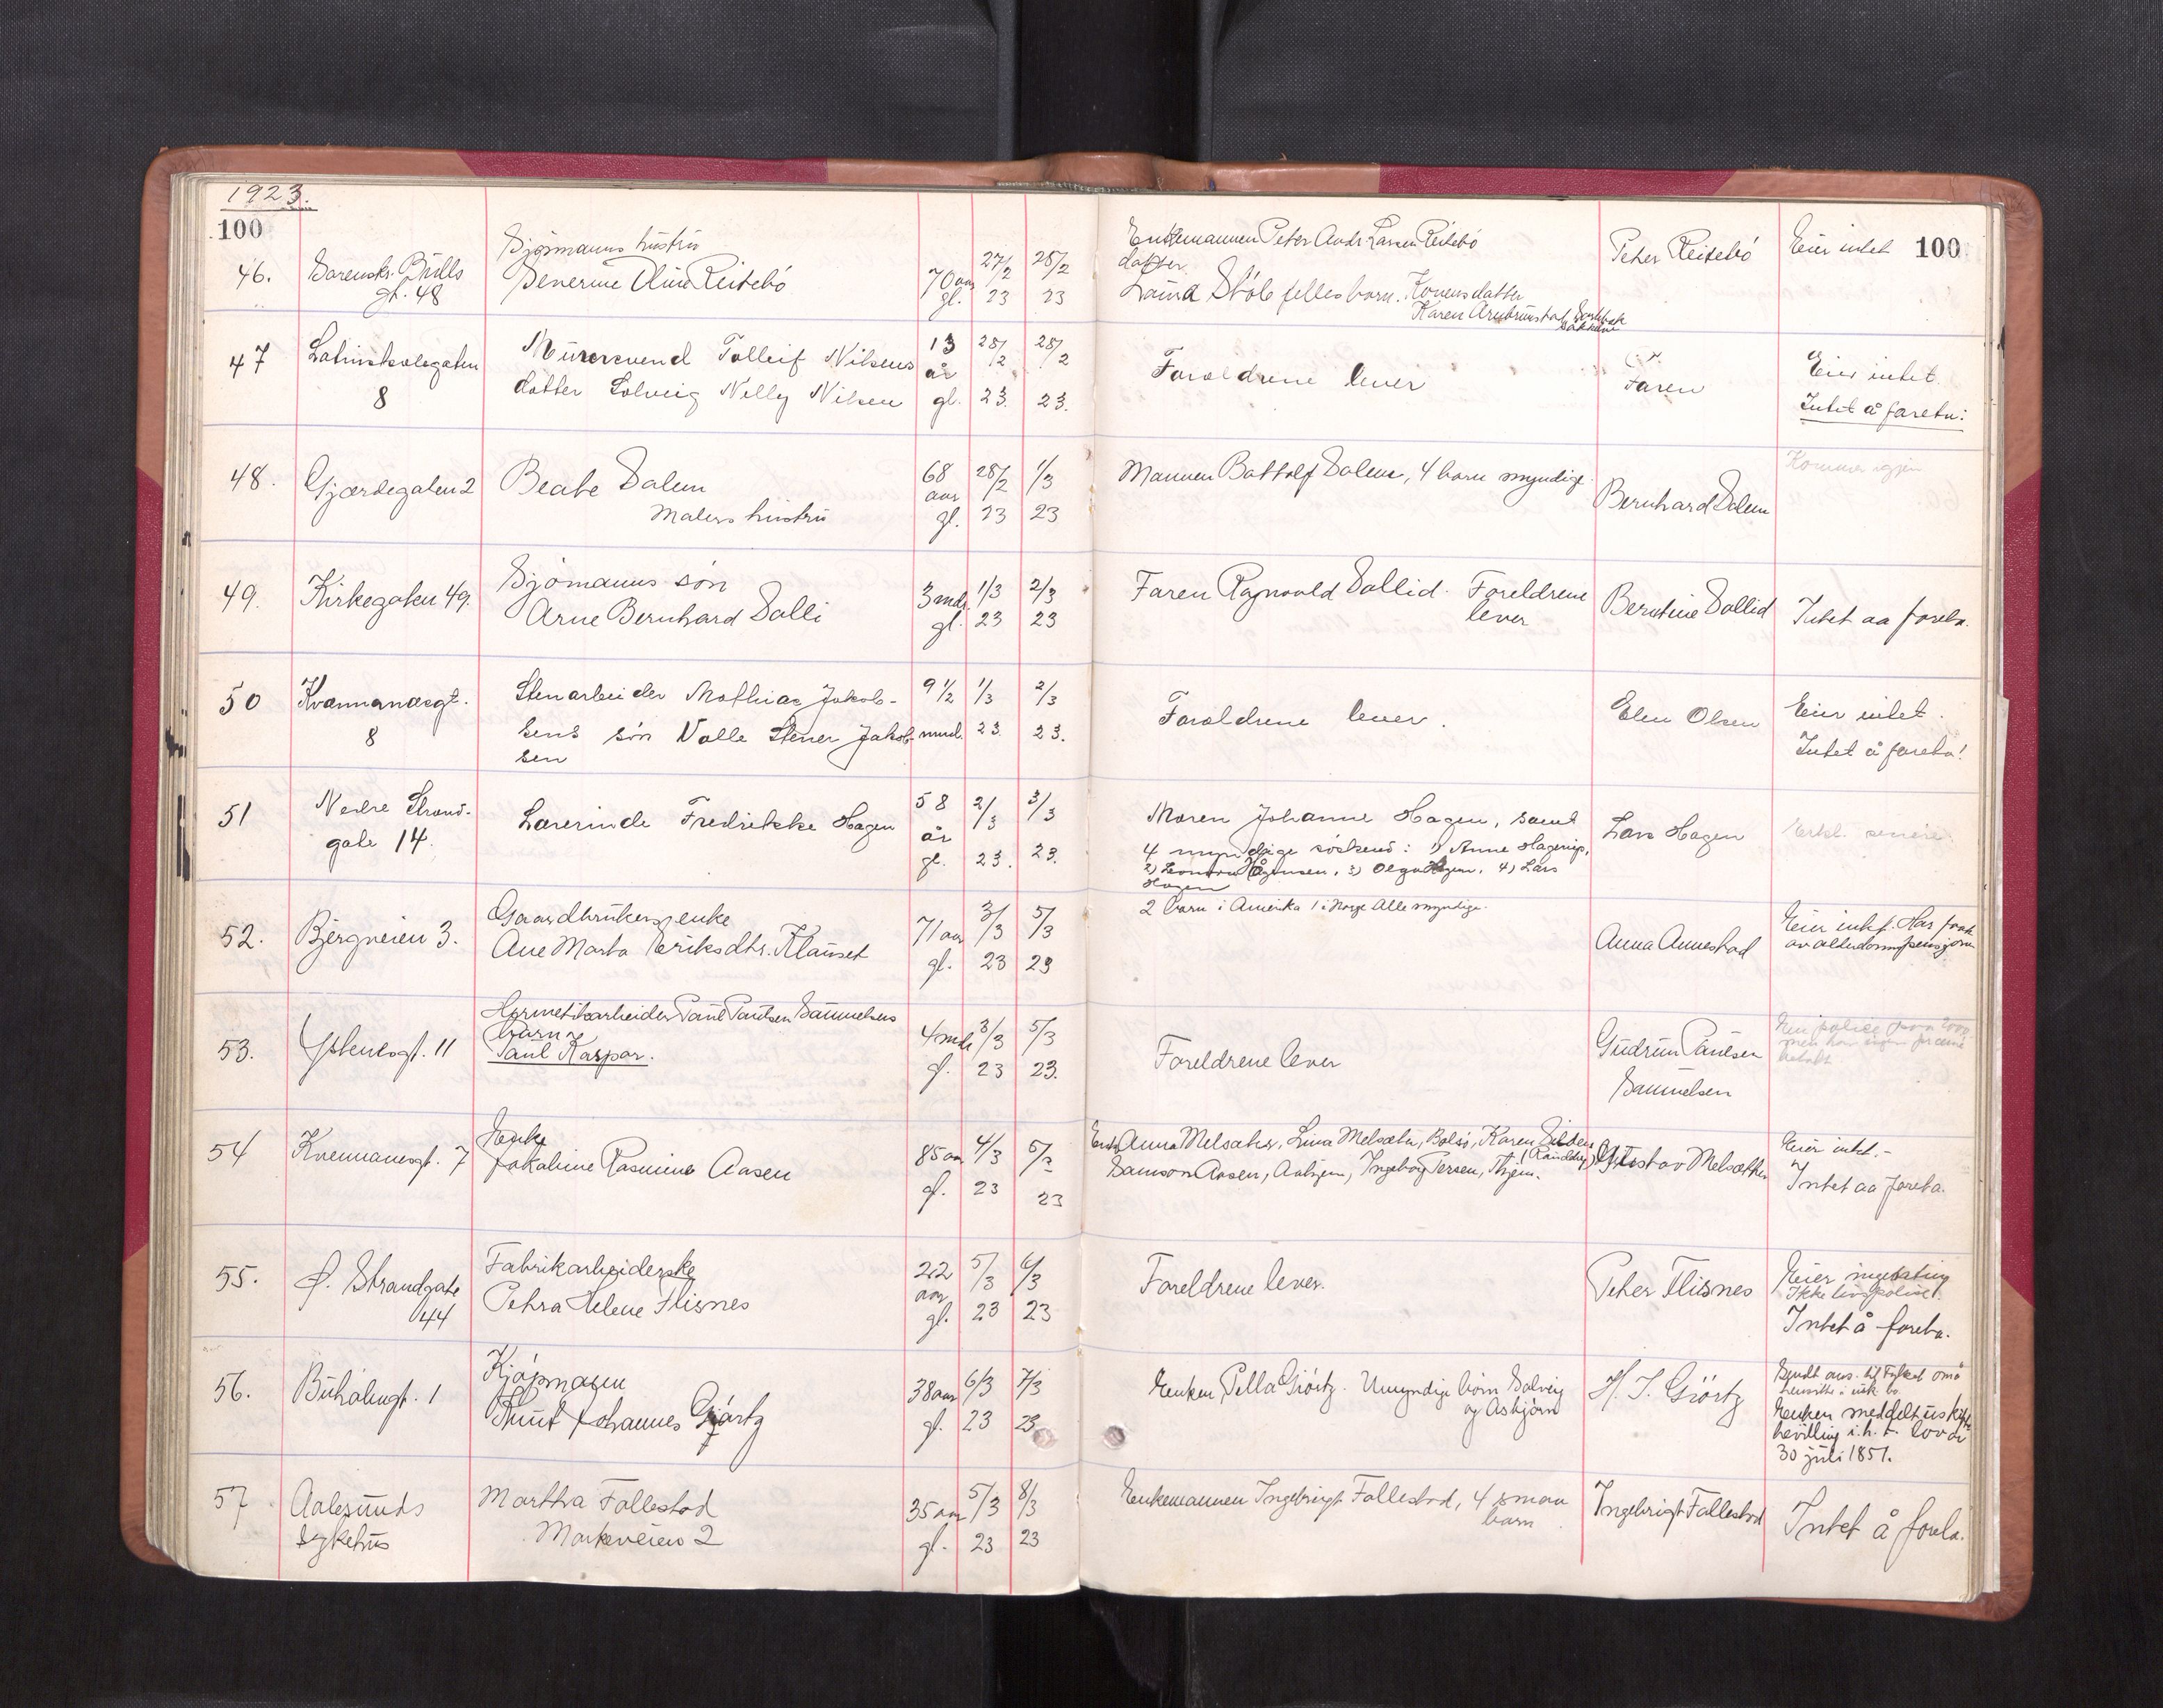 1923.
100
46.
Sorensk. Bulls
gt. 48
Sjømanns hustru
Severine Oline Reitebö
70 aar
gl.
27/2
23
28/2
23
Enkemannen Peter Andr Larsen Reitebö
datter
Laura Stöle felles barn. Konens datter
Karen
Peter Reitebö
Eier intet
100
47
Latinskolegaten
8
Murersvend Tolleif Nilsens
datter Solveig Nelly Nilsen
13
år
gl.
28/2
23.
28/2
23.
Foreldrene lever
Faren
Eier intet.
Intet å foreta:
48.
Gjærdegaten 2
Beate Dalen
Malers hustru
68
aar
gl.
28/2
23
1/3
23
Mannen Bottolf Dalen, 4 barn myndige
Bernhard Dalen
Kommer igjen
49.
Kirkegaten 49.
Sjömanns sön
Arne Bernhard Dalli
3 mdr.
gl.
1/3
23
2/3
23
Faren Ragnvald Dallid. Foreldrene
lever
Berntine Dallid
Intet aa foreta.
50
Kvennanesgt.
8
Stenarbeider Mathias Jakob-
sens sön Valle Stener Jakob-
sen
9 1/2
mnd.
1/3
23.
2/3
23.
Foreldrene lever.
Elen Olsen
Eier intet.
Intet å foreta!
51
Nedre Strand-
gate 14.
Lærerinde Fredrikke Hagen
58
år
gl.
2/3
23.
3/3
23.
Moren Johanne Hagen, samt
4 myndige söskend: 1) Anne Hagerup,
2) 3) Olga Hagen, 4) Lars
Hagen
Lars Hagen
senere
52.
Bjergveien 3.
Gaardbrukers enke
Ane Marta Eriksdtr. Klauset
71 aar
gl.
3/3
23
5/3
23
2 barn i Amerika 1 i Norge Alle myndige.
Anna Annestad
Eier intet. Har faat
av alderdomspensjon
53.
Ystenesgt. 11
Hermetikarbeider Paul Paulsen Samuelsens
barn
Paul Kaspar.
4 mdr
gl.
3/3
23
5/3
23.
Foreldrene lever
Gudrun Paulsen
Samuelsen
54
Kvennanesgt. 7
Enke
Jakobine Rasmine Aasen
85 aar
gl.
4/3
23
5/3
23
Enke Anna Melsæter, Lina Melsæter, Bolsö, Karen
Samson Aasen, Ingeborg Persen,
Gustav Melsæther
Eier intet.-
Intet aa foreta.
55.
Ø. Strandgate
44
Fabrikarbeiderske
Petra Helene Flisnes
22
aar
gl.
5/3
23
6/3
23
Foreldrene lever.
Peter Flisnes
Eier ingenting
Ikke livspolice.
Intet å foreta.
56.
Buholmgt. 1
Kjöpmann
Knut Johannes Gjörtz
38 aar
gl.
6/3
23
7/3
23
Enken Pella Giörtz. Umyndige börn Solveig
og Asbjörn
H. J. Giörtz
Sendt ans. til Fylket om å
hensitte i uskiftet bo.
Enken meddelt uskifte
bevilling i.h.t. lov av
30 juli 1851.
57
Aalesunds
sykehus
Martha Fallestad
Markeveien 2
35 aar
gl.
5/3
23
8/3
23
Enkemannen Ingebrigt Fallestad, 4 smaa
barn
Ingebrigt Fallestad
Intet å foreta.